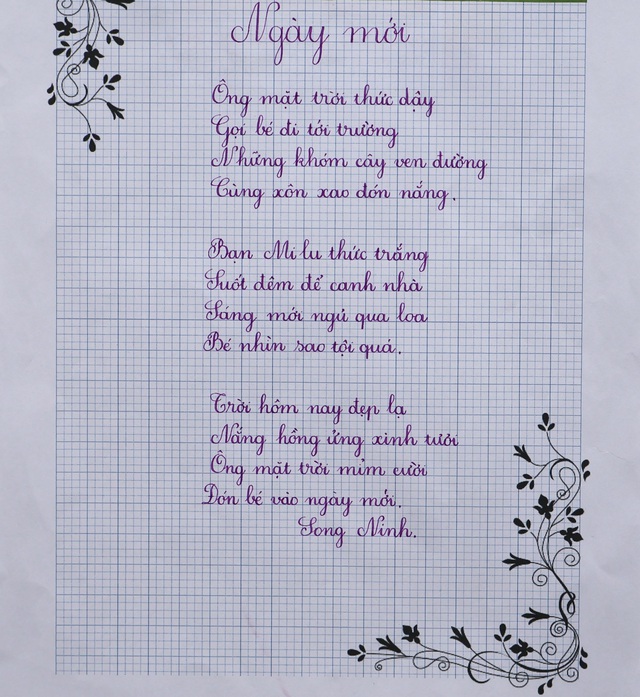 Ngày mới
Ông mặt trời thức dậy
Gọi bé đi tới trường
Những khóm cây ven đường
Cùng xôn xao đón nắng.
Bạn Mi lu thức trắng
Suốt đêm để canh nhà
Sáng mới ngủ qua loa
Bé nhìn sao tội quá.
Trời hôm nay đẹp lạ
Nắng hồng ửng xinh tươi
Ông mặt trời mỉm cười
Đón bé vào ngày mới.
Song Ninh.